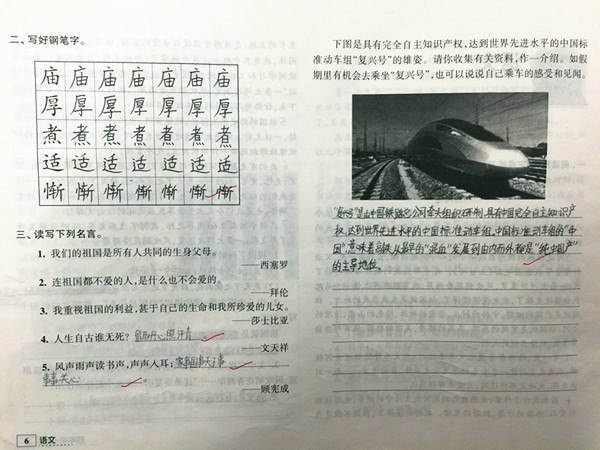 二、写好钢笔字。
庙 庙 庙 庙 庙 庙 庙
厚 厚 厚 厚 厚 厚 厚
煮 煮 煮 煮 煮 煮 煮
适 适 适 适 适 适 适
惭 惭 惭 惭 惭 惭 惭
三、读写下列名言。
1. 我们的祖国是所有人共同的生身父母。
——西塞罗
2. 连祖国都不爱的人,是什么也不会爱的。
——拜伦
3. 我重视祖国的利益,甚于自己的生命和我所珍爱的儿女。
——莎士比亚
4. 人生自古谁无死? 留取丹心照汗青
——文天祥
5. 风声雨声读书声,声声入耳; 家事国事天下事
事事关心
——顾宪成
6 语文
下图是具有完全自主知识产权,达到世界先进水平的中国标
准动车组“复兴号”的雄姿。请你收集有关资料,作一介绍。如假
期里有机会去乘坐“复兴号”,也可以说说自己乘车的感受和见闻。
“复兴号”是由中国铁路总公司牵头组织研制,具有中国完全自主知识产
权,达到世界先进水平的中国标准动车组,中国标准动车组的“中
国”,意味着高铁从最早的“混血”发展到由内而外都是“纯中国产”
的主导地位。